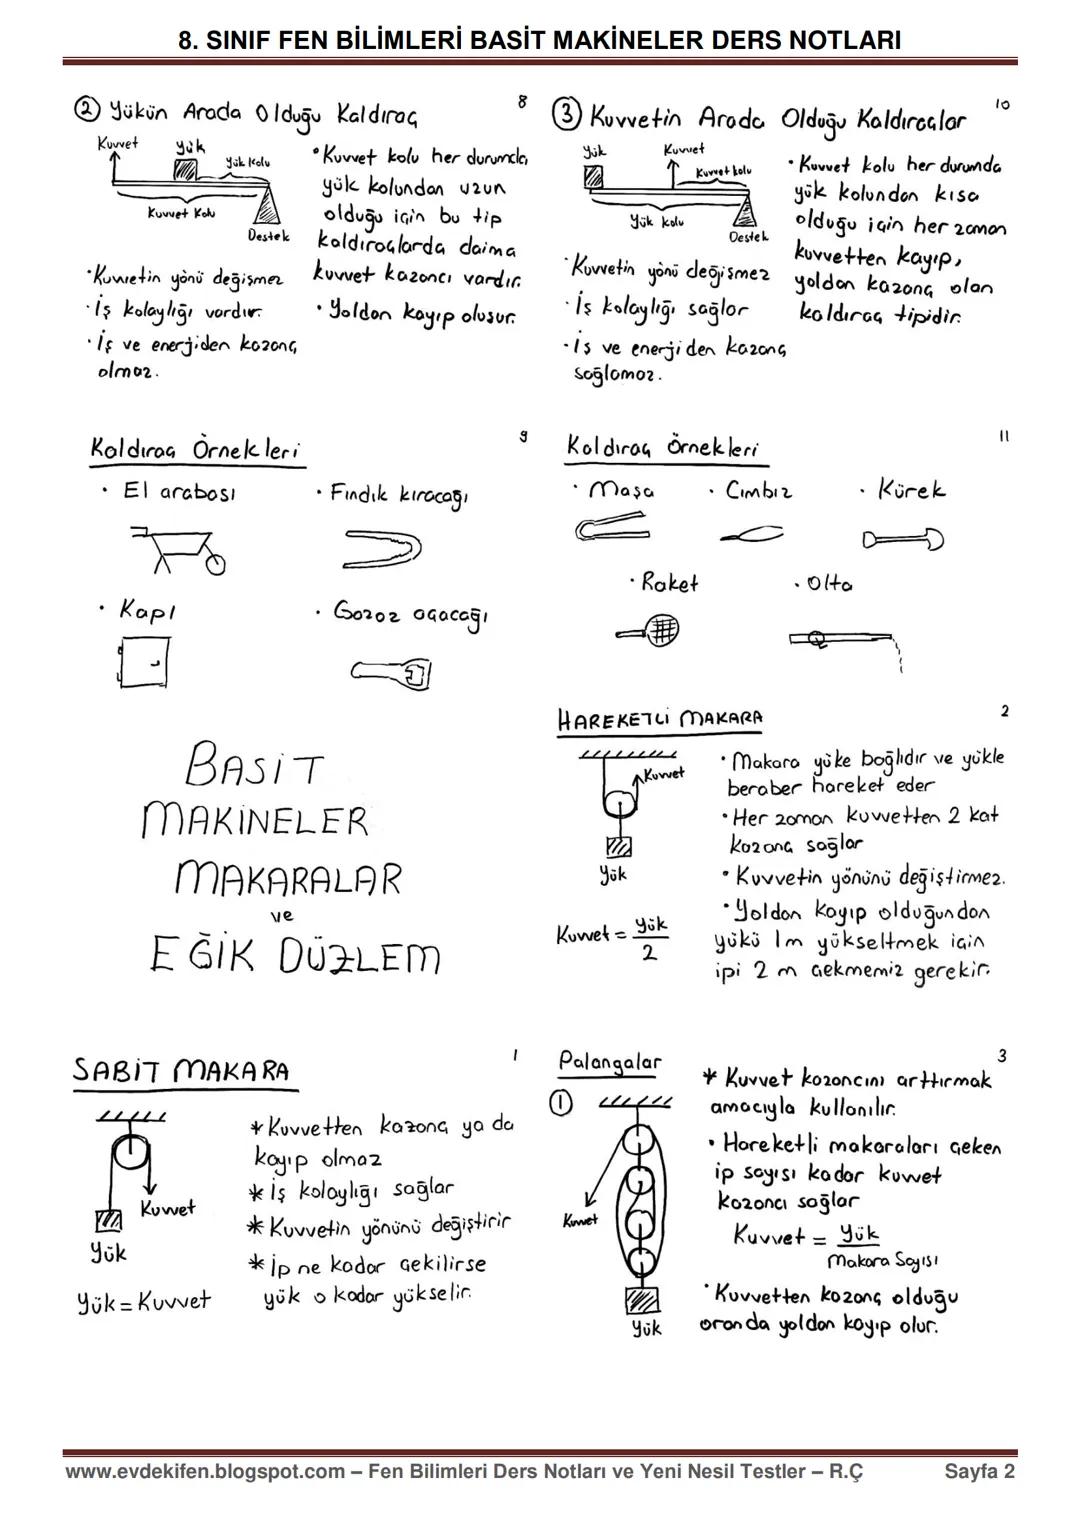 8. SINIF FEN BİLİMLERİ BASİT MAKİNELER DERS NOTLARI
8
② Yükün Arada Olduğu Kaldıraç
Kuvvet
Yük
Yük kolu
Kuvvet Kolu
Destek
• Kuvvet kolu her durumda
yük kolundan uzun
olduğu için bu tip
kaldıraçlarda daima
kuvvet kazancı vardır.
• Yoldan kayıp oluşur.
• Kuvvetin yönü değişmez
• İş kolaylığı vardır.
• İş ve enerjiden kazanç
olmaz.
10
③ Kuvvetin Arada Olduğu Kaldıraçlar
Yük
Kuvvet
Kuvvet kolu
Yük kolu
Destek
• Kuvvet kolu her durumda
yük kolundan kısa
olduğu için her zaman
kuvvetten kayıp,
yoldan kazanç olan
kaldıraç tipidir.
• Kuvvetin yönü değişmez
• İş kolaylığı sağlar
• İş ve enerjiden kazanç
sağlamaz.
9
Kaldıraç Örnekleri
• El arabası
• Fındık kıracağı
• Kapı
• Gazoz açacağı
11
Kaldıraç Örnekleri
• Maşa
• Cımbız
• Kürek
• Raket
• Olta
BASİT
MAKİNELER
MAKARALAR
ve
EĞİK DÜZLEM
2
HAREKETLİ MAKARA
Kuvvet
Yük
Kuvvet = Yük
2
• Makara yüke bağlıdır ve yükle
beraber hareket eder
• Her zaman kuvvetten 2 kat
kazanç sağlar
• Kuvvetin yönünü değiştirmez.
• Yoldan kayıp olduğundan
yükü 1m yükseltmek için
ipi 2 m çekmemiz gerekir.
1
SABİT MAKARA
Kuvvet
Yük
Yük = Kuvvet
* Kuvvetten kazanç ya da
kayıp olmaz
* İş kolaylığı sağlar
* Kuvvetin yönünü değiştirir
* İp ne kadar çekilirse
yük o kadar yükselir.
3
Palangalar
①
Kuvvet
Yük
* Kuvvet kazancını arttırmak
amacıyla kullanılır.
• Hareketli makaraları çeken
ip sayısı kadar kuvvet
kazancı sağlar
Kuvvet = Yük
Makara Sayısı
• Kuvvetten kazanç olduğu
oranda yoldan kayıp olur.
www.evdekifen.blogspot.com – Fen Bilimleri Ders Notları ve Yeni Nesil Testler – R.Ç
Sayfa 2